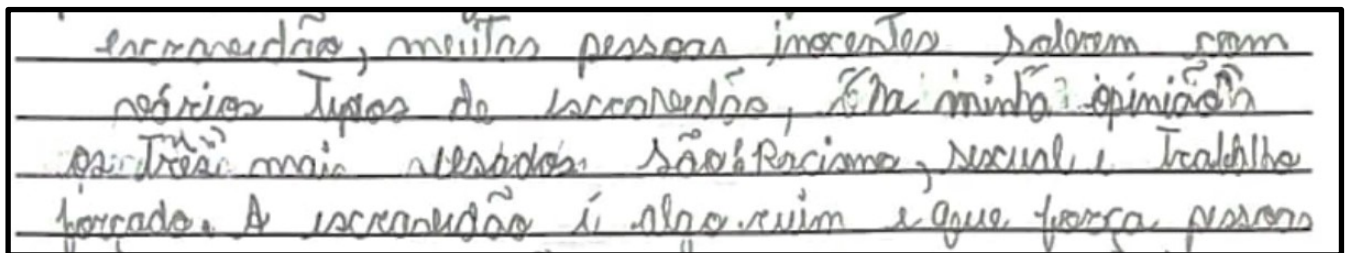 escravidão, muitas pessoas inocentes sofrem com
vários tipos de escravidão, Na minha opinião
os três mais usados são: Racismo, sexual e Trabalho
forçado. A escravidão é algo ruim e que força pessoas